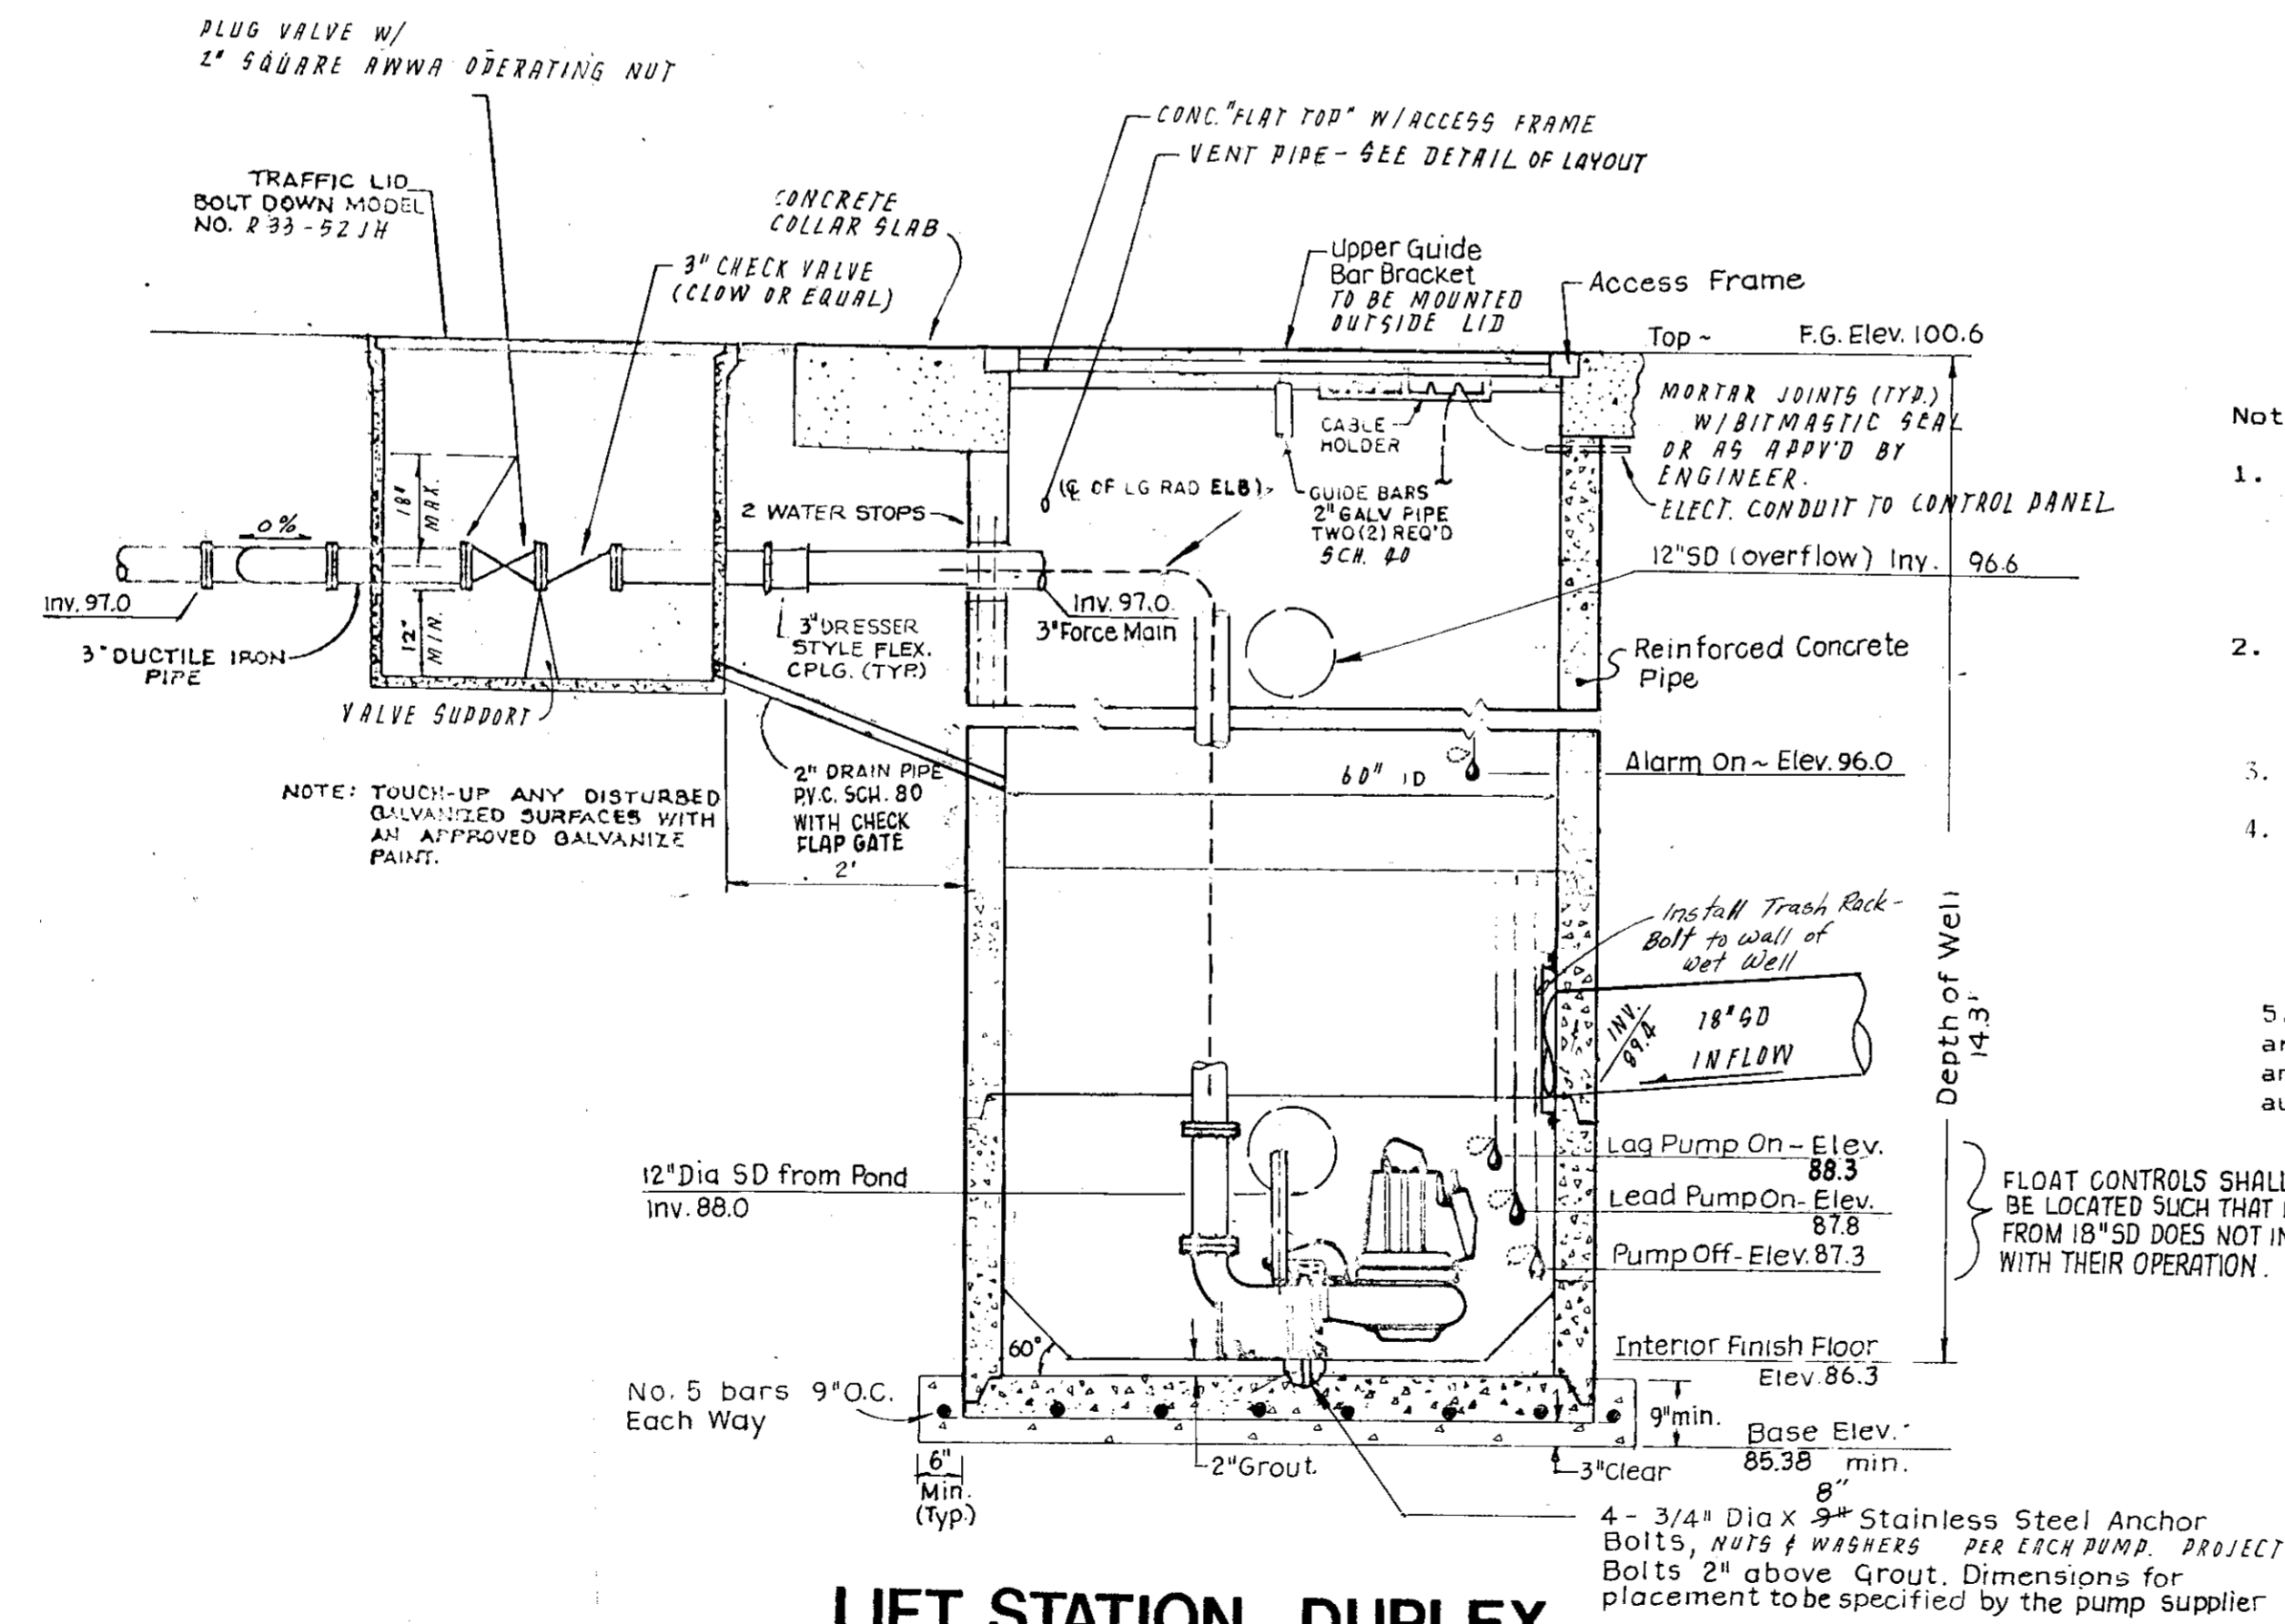 PLUG VALVE W/
2" SQUARE AWWA OPERATING NUT
TRAFFIC LID
BOLT DOWN MODEL
NO. R33-52JH
3" CHECK VALVE
(CLOW OR EQUAL)
CONCRETE
COLLAR SLAB
CONC. "FLAT TOP" W/ACCESS FRAME
VENT PIPE - SEE DETAIL OF LAYOUT
Upper Guide
Bar Bracket
TO BE MOUNTED
OUTSIDE LID
Access Frame
Top ~ F.G. Elev. 100.6
MORTAR JOINTS (TYP.)
W/BITMASTIC SEAL
OR AS APPV'D BY
ENGINEER.
ELECT. CONDUIT TO CONTROL PANEL
CABLE
HOLDER
(℄ OF LG RAD ELB)
GUIDE BARS
2" GALV PIPE
TWO (2) REQ'D
SCH. 40
2 WATER STOPS
18" MAX.
12" MIN.
0%
Inv. 97.0
3" DUCTILE IRON
PIPE
VALVE SUPPORT
3" DRESSER
STYLE FLEX.
CPLG. (TYP.)
Inv. 97.0
3" Force Main
12" SD (overflow) Inv. 96.6
Reinforced Concrete
Pipe
Alarm On ~ Elev. 96.0
60" ID
2" DRAIN PIPE
P.V.C. SCH. 80
WITH CHECK
FLAP GATE
2'
NOTE: TOUCH-UP ANY DISTURBED
GALVANIZED SURFACES WITH
AN APPROVED GALVANIZE
PAINT.
Install Trash Rack -
Bolt to wall of
Wet Well
INV.
89.4
18" SD
INFLOW
Depth of Well
14.3'
12" Dia SD from Pond
Inv. 88.0
Lag Pump On - Elev.
88.3
Lead Pump On - Elev.
87.8
Pump Off - Elev. 87.3
FLOAT CONTROLS SHALL
BE LOCATED SUCH THAT
FROM 18" SD DOES NOT IN
WITH THEIR OPERATION.
60°
Interior Finish Floor
Elev. 86.3
No. 5 bars 9" O.C.
Each Way
9" min.
Base Elev.
85.38 min.
6"
Min.
(Typ.)
2" Grout.
3" Clear
8"
4 - 3/4" Dia X 9" Stainless Steel Anchor
Bolts, NUTS & WASHERS PER EACH PUMP. PROJECT
Bolts 2" above Grout. Dimensions for
placement to be specified by the pump supplier
LIFT STATION DUPLEX
Not
1.
2.
3.
4.
5.
ar
ar
au